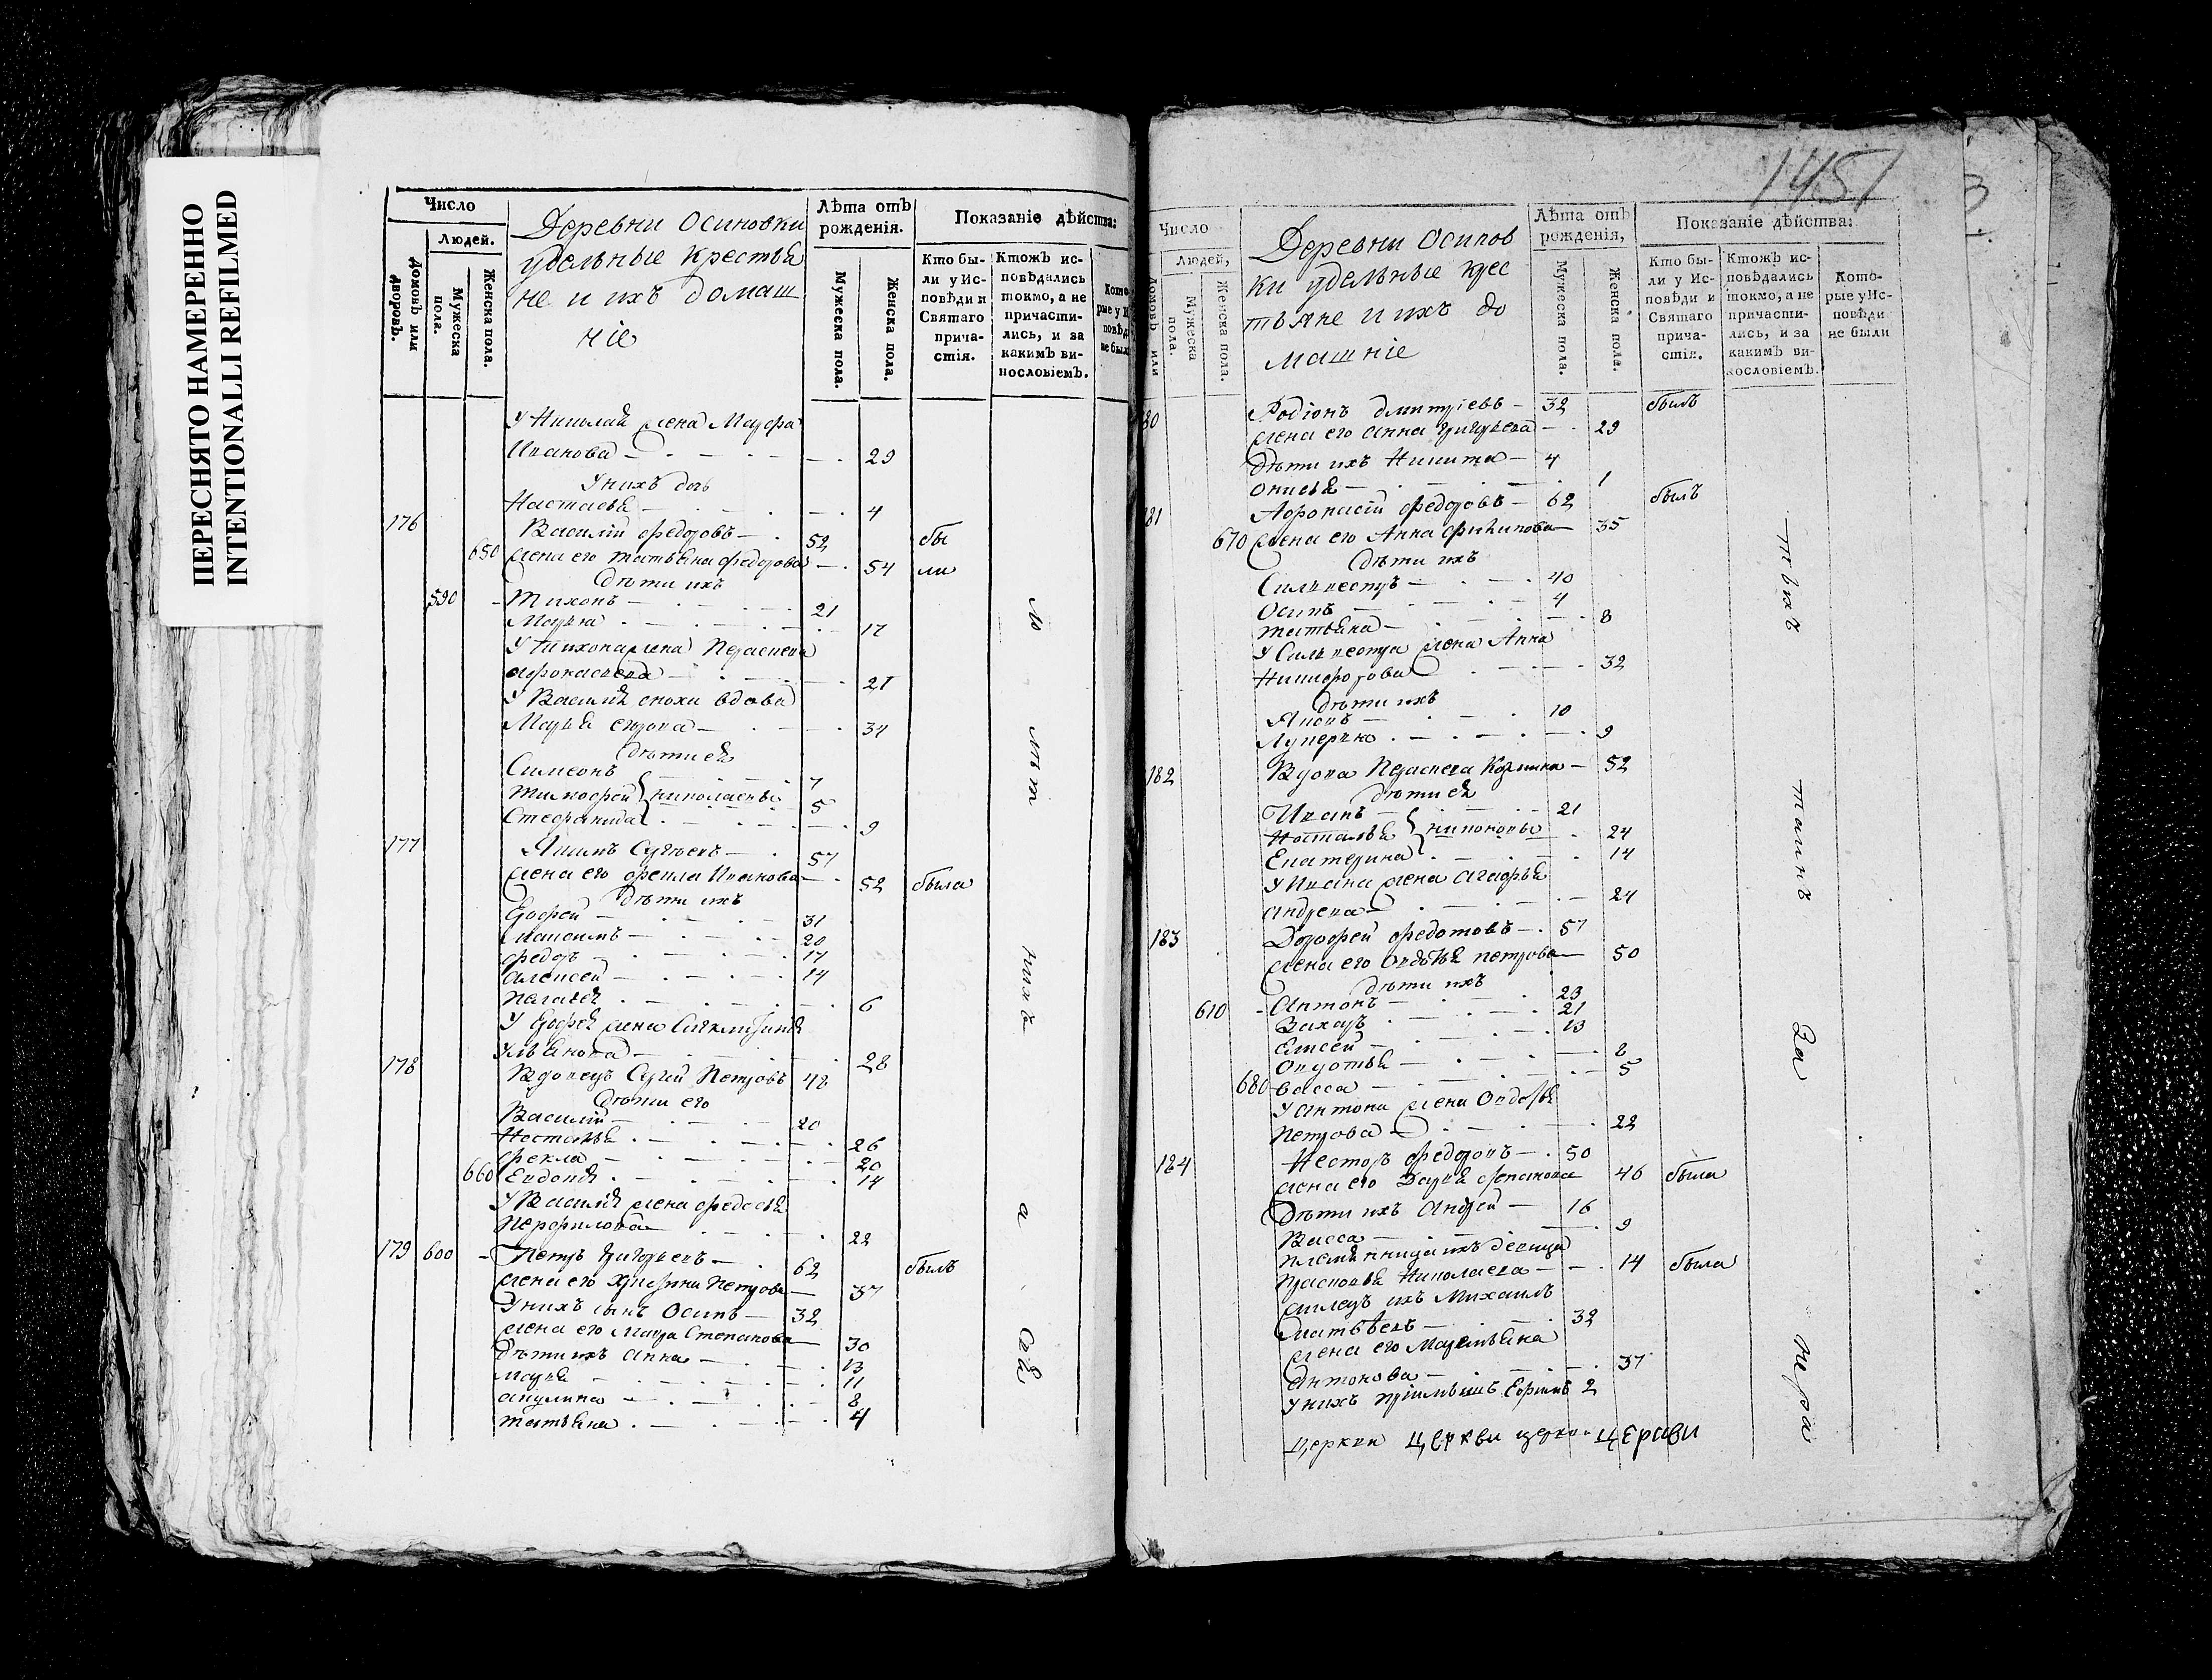 ПЕРЕСНЯТО НАМЕРЕННО
INTENTIONALLI REFILMED
Число
Людей.
Домовъ или дворовъ.
Мужеска пола.
Женска пола.
Деревни Осиновки
удельные крестья
не и ихъ домаш
ніе
Лѣта отъ рожденія.
Мужеска пола.
Женска пола.
Показаніе дѣйства:
Кто бы-
ли у Ис-
повѣди и
Святаго
прича-
стія.
Ктожъ ис-
повѣдались
токмо, а не
причасти-
лись, и за
какимъ ви-
нословіемъ.
У Николая жена Марфа
Иванова 29
У нихъ дочь
Настасья 4
176 Василий Федоровъ 52 бы
650 жена его татьяна федорова 54 ли
дѣти ихъ
590 Тихонъ 21
Марья 17
У Тихона жена Парасковья
афонасьева 21
У Василия сноха вдова
Марья егорова 34
дѣти ея
Симеонъ 7
тимофей николаевы 5
Стефанида 9
177 Якимъ Сергѣевъ 57
жена его фекла Иванова 52 была
дѣти ихъ
Ерофей 31
Максимъ 20
федоръ 17
алексей 14
Пелагея 6
У Ерофея жена
Ульянова 28
178 Вдовецъ Сергий Петровъ 48
дѣти его
Василий 20
Наталья 26
фекла 20
660 Евдокия 14
У Василия жена федосья
Перфилова 22
179 600 Петръ Григорьевъ 62 былъ
жена его Христина Петрова 37
У нихъ сынъ Осипъ 32
жена его Марфа Степанова 30
Дѣти ихъ Анна 13
Марья 11
акулина 8
татьяна 4
1451
Число
Людей,
Домовъ или
Мужеска пола.
Женска пола.
Деревни Осинов
ки удельные крес
тьяне и ихъ до
машніе
Лѣта отъ рожденія,
Мужеска пола.
Женска пола.
Показаніе дѣйства:
Кто бы-
ли у Ис-
повѣди и
Святаго
прича-
стія.
Ктожъ ис-
повѣдались
токмо, а не
причасти-
лись, и за
какимъ ви-
нословіемъ.
Кото-
рые у Ис-
повѣди
не были
80 Родіонъ дмитріевъ 32 былъ
жена его анна григорьева 29
Дѣти ихъ Никита 4
Онисья 1
81 Афонасій федоровъ 62 былъ
670 жена его Анна филипова 35
дѣти ихъ
Сильвестръ 40
Осипъ 4
татьяна 8
У Сильвестра жена Анна
Никифорова 32
дѣти ихъ
Яковъ 10
Лукерья 9
182 Вдова Козмина 52
дѣти ея
Иванъ 21
Наталья никоновы 24
Екатерина 14
У Ивана жена агафья
андреева 24
183 Дорофей федотовъ 57
жена его Овдотья петрова 50
дѣти ихъ
610 Антонъ 23
Захаръ 21
Елисей 13
Овдотья 8
680 Васса 5
У антона жена Овдотья
Петрова 22
184 Несторъ федоровъ 50
жена его Дарья степанова 46 была
Дѣти ихъ Андрей 16
Васса 9
племянница ихъ девица
Прасковья Николаева 14 была
жилецъ ихъ Михаилъ
Матвѣевъ 32
жена его Маремьяна
антонова 37
У нихъ приимышъ Ефимъ 2
церкви церкви церкви церкви